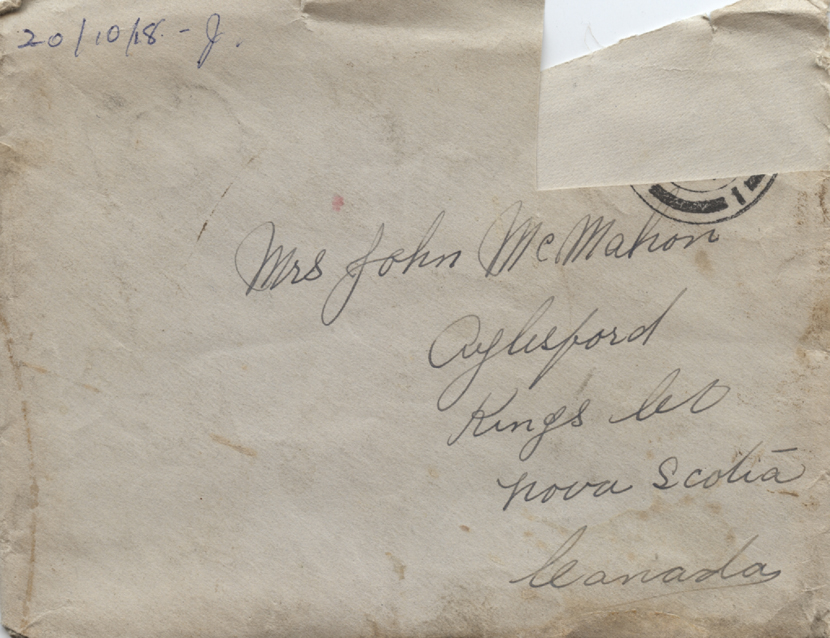 20/10/18 - J.
Mrs John McMahon
Aylesford
Kings Co
Nova Scotia
Canada